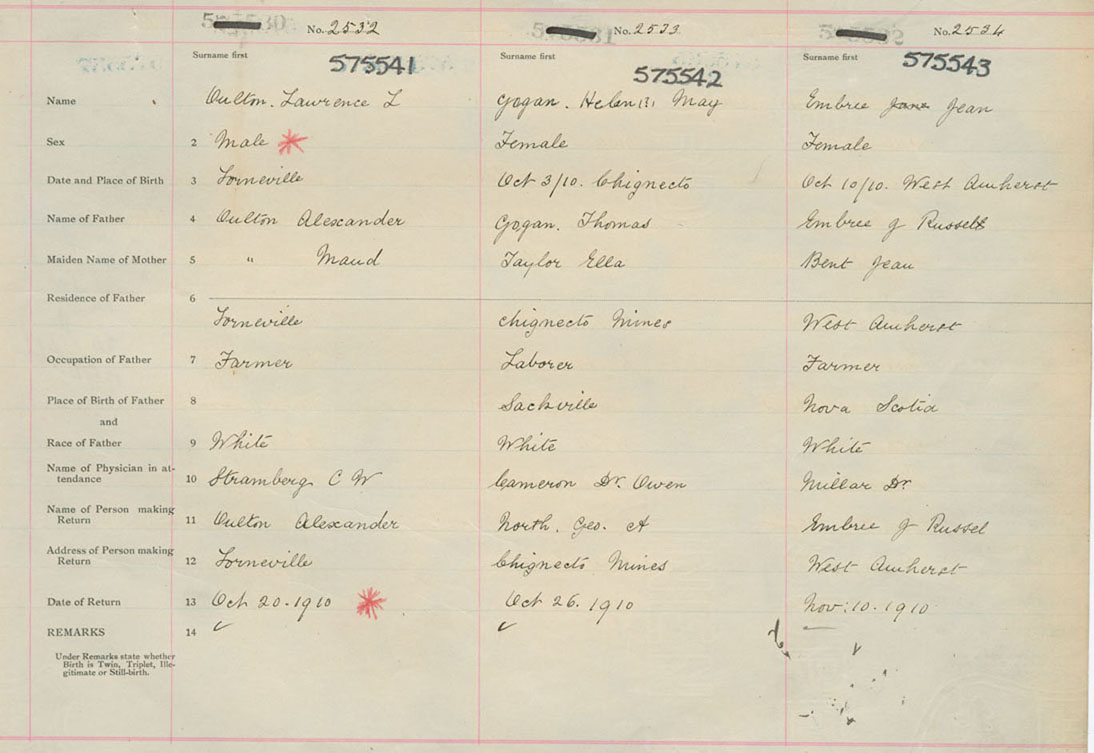 No. 2532 No. 2533 No. 2534
Surname first Surname first Surname first
575541 575542 575543
Name Oulton. Lawrence L Gogan. Helen May Embree Jean
Sex 2 Male Female Female
Date and Place of Birth 3 Lorneville Oct 3/10. Chignecto Oct 10/10. West Amherst
Name of Father 4 Oulton Alexander Gogan. Thomas Embree J Russel
Maiden Name of Mother 5 " Maud Taylor Ella Bent Jean
Residence of Father 6
Lorneville Chignecto Mines West Amherst
Occupation of Father 7 Farmer Laborer Farmer
Place of Birth of Father 8 Sackville Nova Scotia
and
Race of Father 9 White White White
Name of Physician in at-
tendance 10 Stramberg C W Cameron Dr. Owen Millar Dr
Name of Person making
Return 11 Oulton Alexander North. Geo. A Embree J Russel
Address of Person making
Return 12 Lorneville Chignecto Mines West Amherst
Date of Return 13 Oct 20-1910 Oct 26. 1910 Nov. 10-1910
REMARKS 14
Under Remarks state whether
Birth is Twin, Triplet, Ille-
gitimate or Still-birth.